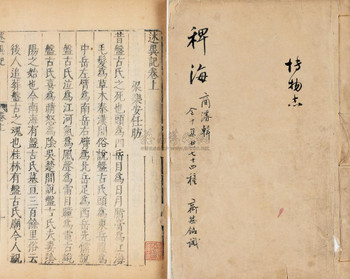 述異記卷上
梁樂安任昉
昔盤古氏之死也頭爲四岳目爲日月脂膏爲江海
毛髮爲草木秦漢間俗說盤古氏頭爲東岳腹爲
中岳左臂爲南岳右臂爲北岳足爲西岳先儒說
盤古氏泣爲江河氣爲風聲爲雷目瞳爲電古說
盤古氏喜爲晴怒爲陰吳楚間說盤古氏夫妻陰
陽之始也今南海有盤古氏墓亘三百餘里俗云
後人追葬盤古之魂也桂林有盤古氏廟今人祝
博物志
稗海
商濬輯
全十集共七十四種